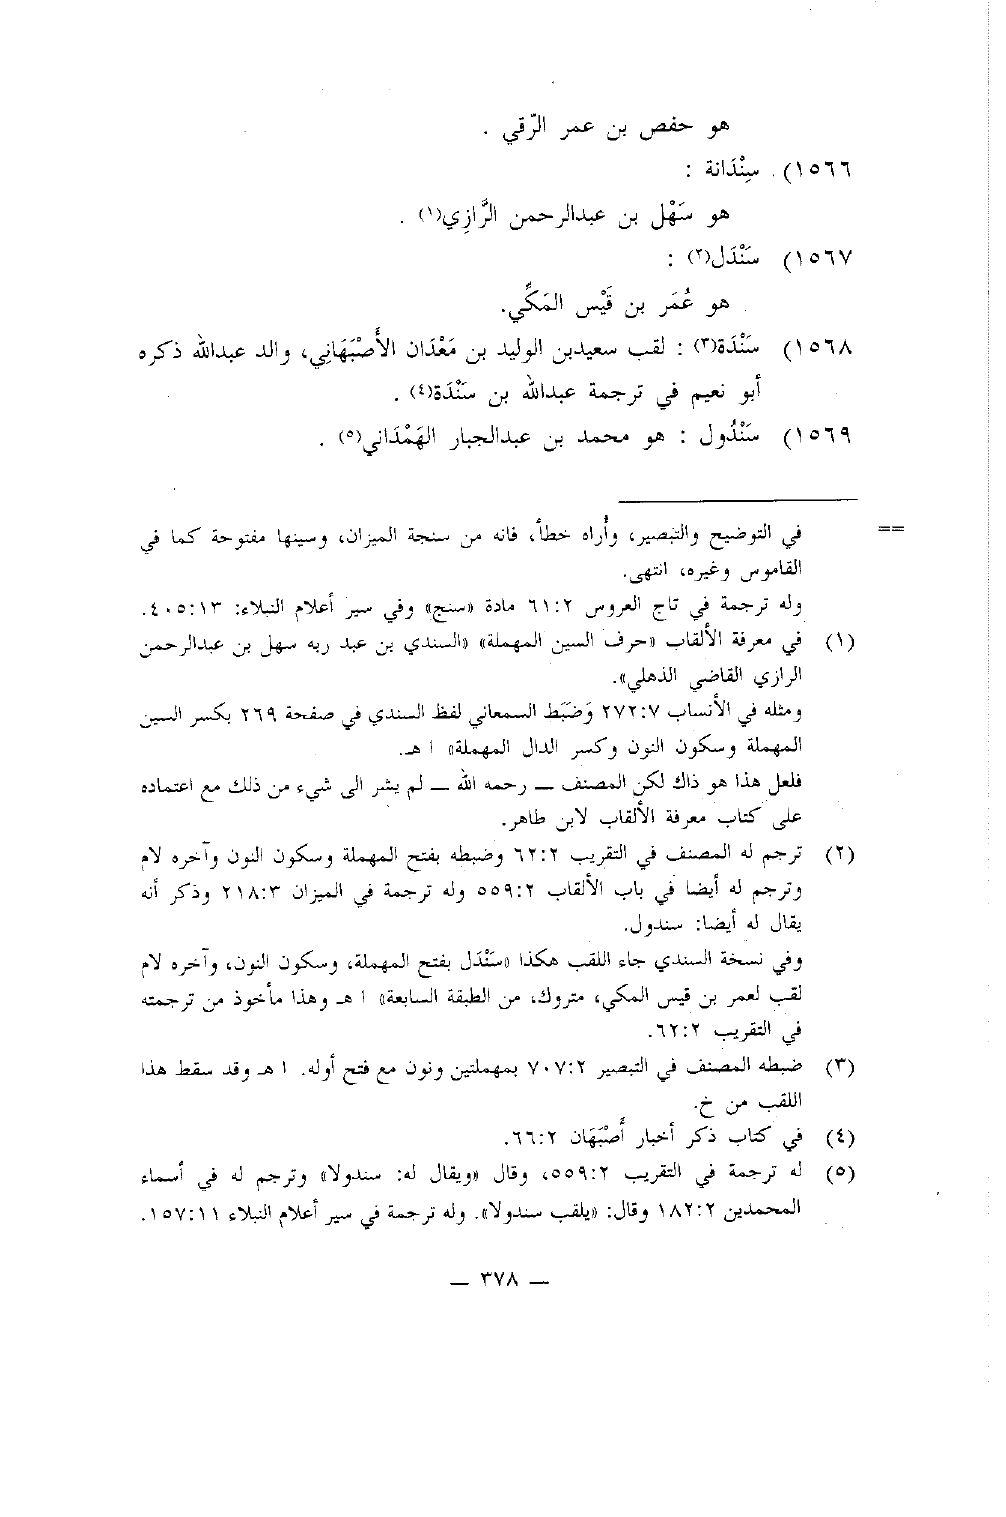 هو حفص بن عمر الرّقي .
١٥٦٦) . سِنْدَانة :
هو سَهْل بن عبدالرحمن الرَّازِي(١) .
١٥٦٧) سَنْدَل(٢) :
هو عُمَر بن قَيْس المَكِّي.
١٥٦٨) سَنْدَة(٣) : لقب سعيدبن الوليد بن مَعْدَان الأَصْبَهَانِي، والد عبدالله ذكره
أبو نعيم في ترجمة عبدالله بن سَنْدَة(٤) .
١٥٦٩) سَنْدُول : هو محمد بن عبدالجبار الهَمْدَاني(٥) .
== في التوضيح والتبصير، وأُراه خطأ، فانه من سنجة الميزان، وسينها مفتوحة كما في
القاموس وغيره، انتهى.
وله ترجمة في تاج العروس ٦١:٢ مادة «سنج» وفي سير أعلام النبلاء: ٤٠٥:١٣.
(١) في معرفة الألقاب «حرف السين المهملة» «السندي بن عبد ربه سهل بن عبدالرحمن
الرازي القاضي الذهلي».
ومثله في الأنساب ٢٧٢:٧ وَضَبَط السمعاني لفظ السندي في صفحة ٢٦٩ بكسر السين
المهملة وسكون النون وكسر الدال المهملة» ا هـ.
فلعل هذا هو ذاك لكن المصنف ــ رحمه الله ــ لم يشر الى شيء من ذلك مع اعتماده
على كتاب معرفة الألقاب لابن طاهر.
(٢) ترجم له المصنف في التقريب ٦٢:٢ وضبطه بفتح المهملة وسكون النون وآخره لام
وترجم له أيضا في باب الألقاب ٥٥٩:٢ وله ترجمة في الميزان ٢١٨:٣ وذكر أنه
يقال له أيضا: سندول.
وفي نسخة السندي جاء اللقب هكذا «سَنْدَل بفتح المهملة، وسكون النون، وآخره لام
لقب لعمر بن قيس المكي، متروك، من الطبقة السابعة» ا هـ وهذا مأخوذ من ترجمته
في التقريب ٦٢:٢.
(٣) ضبطه المصنف في التبصير ٧٠٧:٢ بمهملتين ونون مع فتح أوله. ا هـ وقد سقط هذا
اللقب من خ.
(٤) في كتاب ذكر أخبار أَصْبَهَان ٦٦:٢.
(٥) له ترجمة في التقريب ٥٥٩:٢، وقال «ويقال له: سندولا» وترجم له في أسماء
المحمدين ١٨٢:٢ وقال: «يلقب سندولا». وله ترجمة في سير أعلام النبلاء ١٥٧:١١.
ــ ٣٧٨ ــ